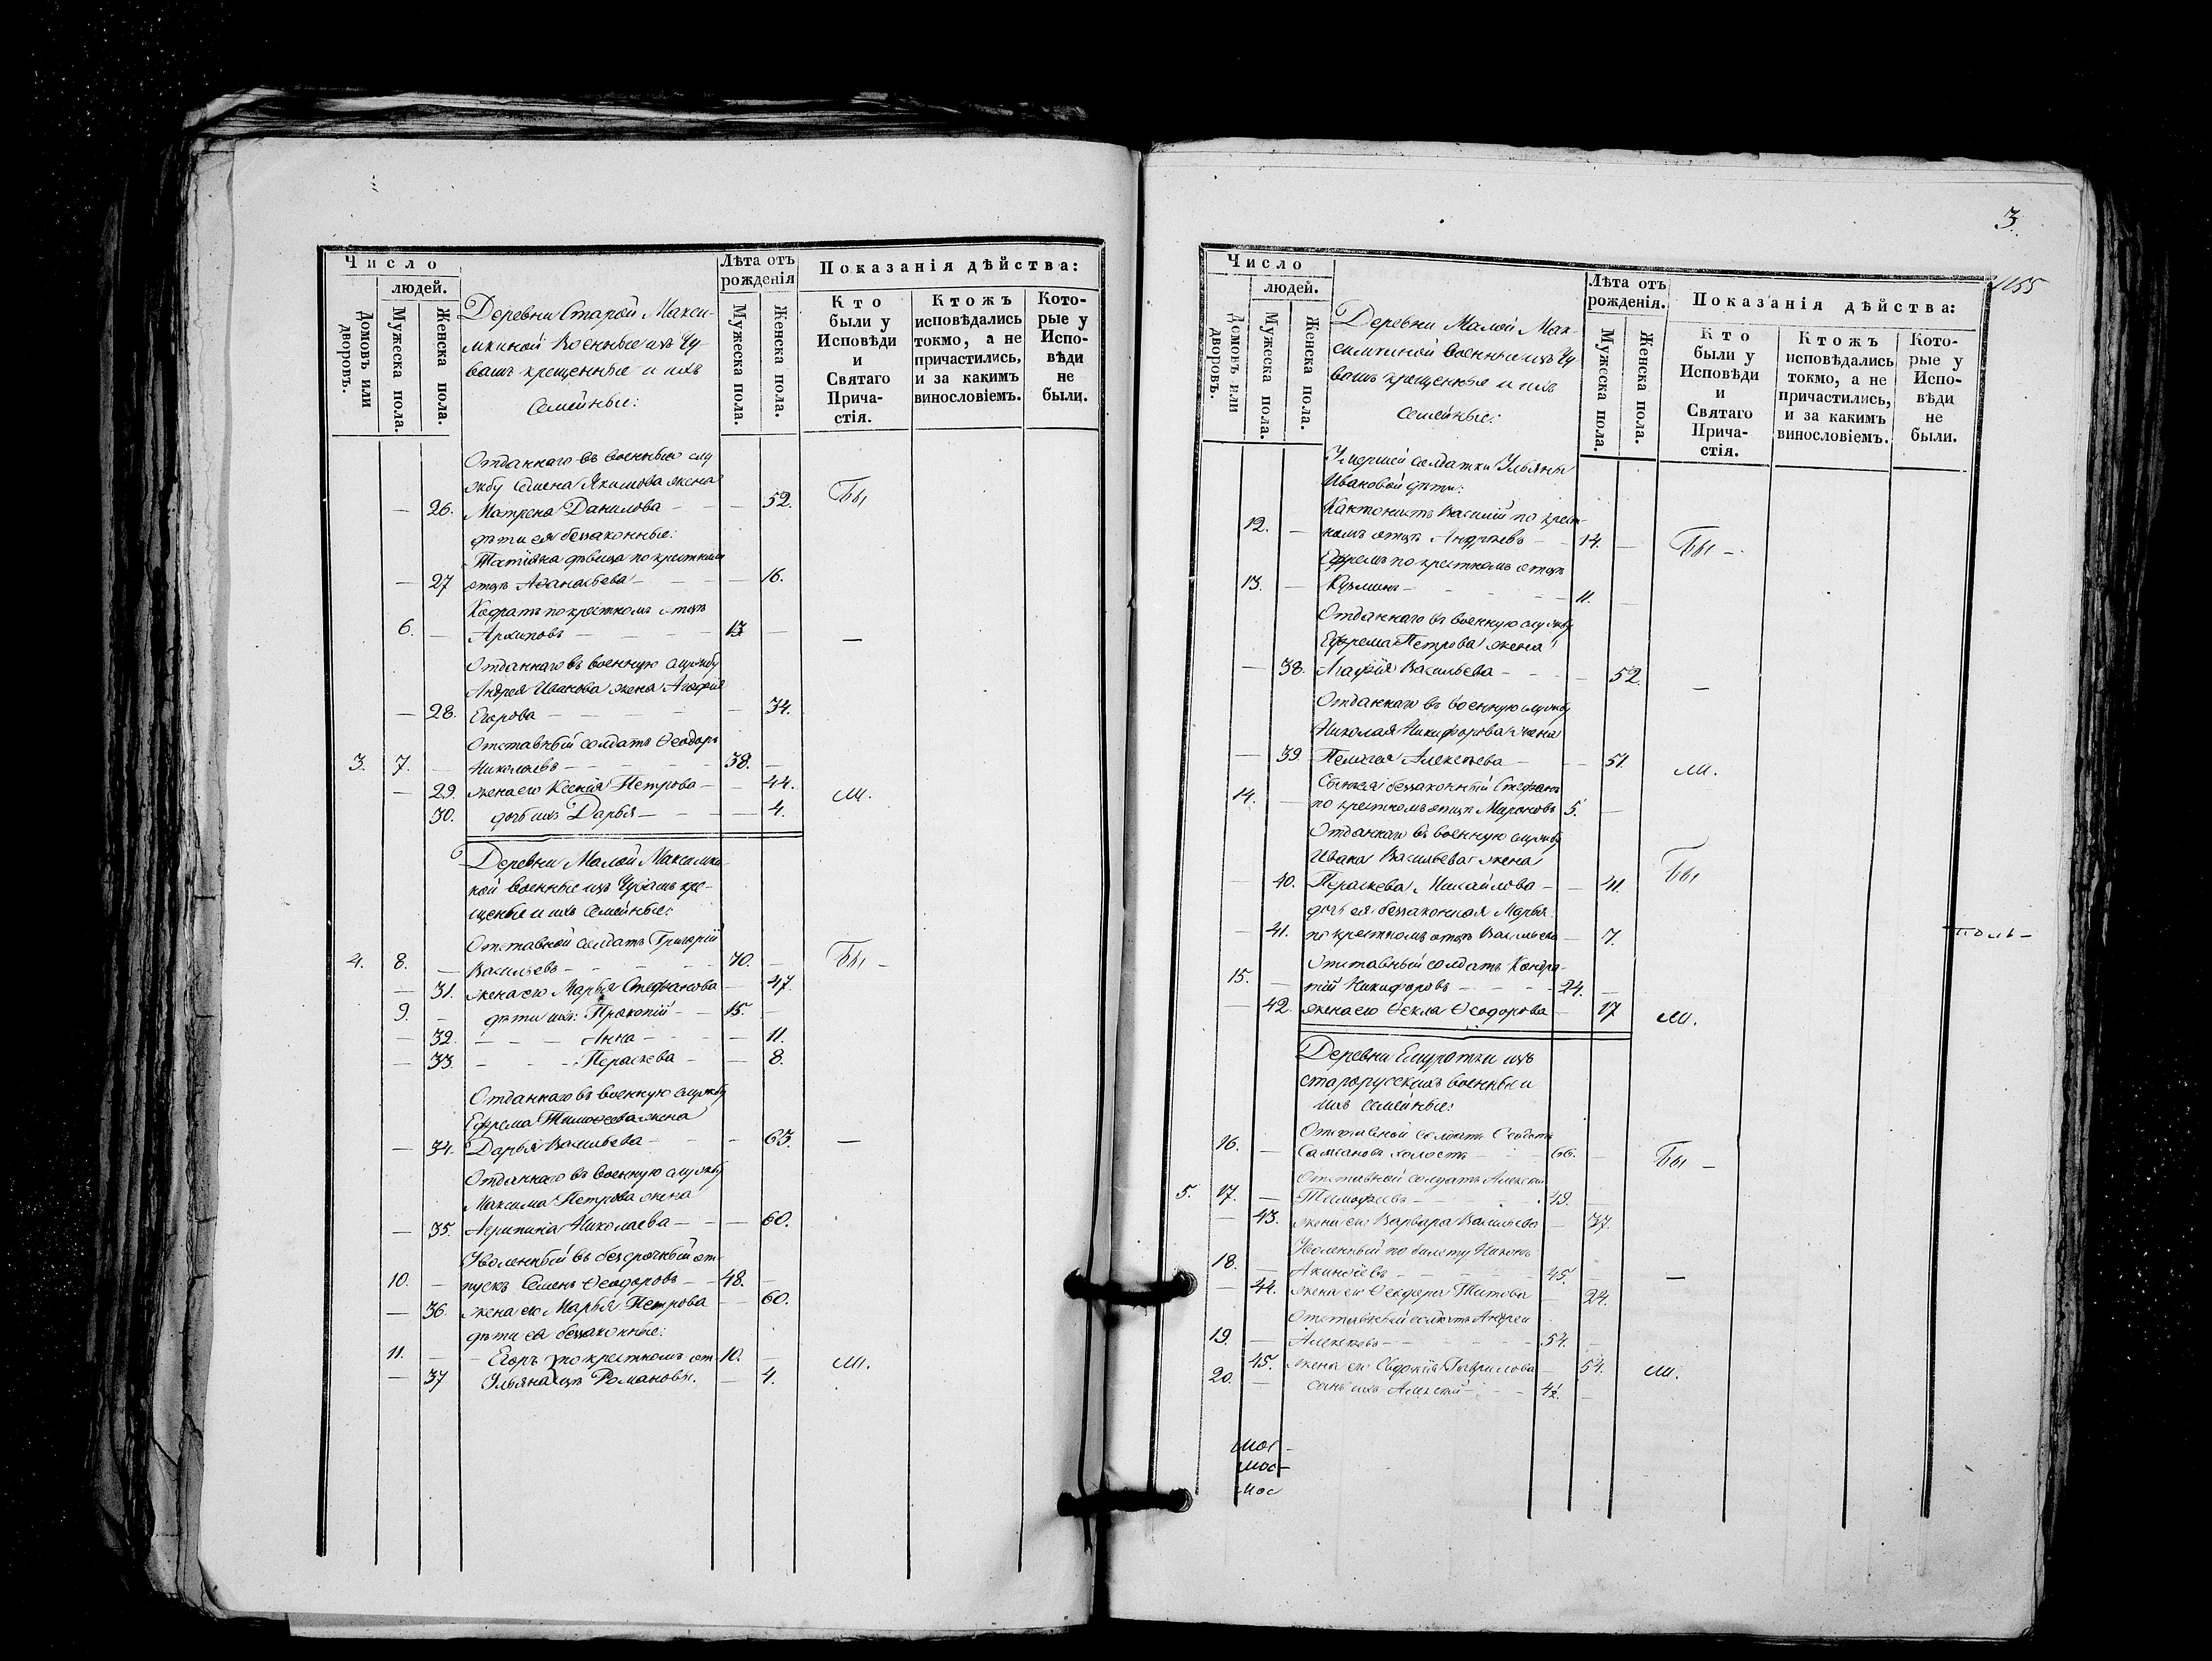 Число
людей.
Домовъ или дворовъ.
Мужеска пола.
Женска пола.
Деревни Старой Макси-
мкиной Военные изъ Чу-
вашъ крещенные и ихъ
Семейные:
Лѣта отъ
рожденія
Мужеска пола.
Женска пола.
Показанія дѣйства:
Кто
были у
Исповѣди
и
Святаго
Прича-
стія.
Ктожъ
исповѣдались
токмо, а не
причастились,
и за какимъ
винословіемъ.
Кото-
рые у
Испо-
вѣди
не
были.
Отданнаго въ военную слу
жбу Семена Якимова жена
— 26. Матрена Данилова — — 52. Бы
дѣти ея беззаконные:
Татіяна дѣвица по крестномъ
— 27 отцѣ Аѳанасьева — — 16.
Кодратъ по крестномъ отцѣ
6. — Архиповъ — 13 — —
Отданнаго въ военную службу
Андрея Иванова жена Агафія
— 28. Егорова — — 34.
Отставный солдатъ Ѳеодоръ
3. 7. — Николаевъ — 38. —
— 29. жена его Ксенія Петрова — — 44. ли.
30. дочь ихъ Дарья — — 4.
Деревни Малой Максимки-
ной военные изъ Чувашъ кре-
щеные и ихъ Семейные:
Отставной солдатъ Григорій
4. 8. — Васильевъ — 70. — Бы —
— 31. жена его Марья Стефанова — 47.
9. — дѣти ихъ: Прокопій — 15. —
— 32. — — — Анна — — 11.
— 33. — — — Параскева — — 8.
Отданнаго въ военную службу
Ефрема Тимоѳеева жена
— 34. Дарья Васильева — — 63. —
Отданнаго въ военную службу
Максима Петрова жена
— 35. Агрипина Николаева — — 60.
Уволенный въ безсрочный от-
10. — пускъ Семенъ Ѳеодоровъ — 48. —
— 36. жена его Марья Петрова — 60.
дѣти ея беззаконные:
11. — — Егоръ по крестномъ от- 10. — ли.
— 37 Ульяна цѣ Романовы. — 4.
3.
1155
Число
людей.
Домовъ или дворовъ.
Мужеска пола.
Женска пола.
Деревни Малой Мак-
симкиной военные изъ Чу
вашъ крещенные и ихъ
Семейные:
Лѣта отъ
рожденія.
Мужеска пола.
Женска пола.
Показанія дѣйства:
Кто
были у
Исповѣди
и
Святаго
Прича-
стія.
Ктожъ
исповѣдались
токмо, а не
причастились,
и за какимъ
винословіемъ.
Кото-
рые у
Испо-
вѣди
не
были.
Умершей солдатки Ульяны
Ивановой дѣти:
Кантонистъ Василій по крест-
12. — номъ отцѣ Андреевъ — 14. — Бы —
Ефремъ по крестномъ отцѣ
13. — Кузминъ — 11. —
Отданнаго въ военную службу
Ефрема Петрова жена
— 38. Агафія Васильева — — 52. —
Отданнаго въ военную службу
Николая Никифорова жена
— 39. Пелагея Алексѣева — — 51. ли.
Сынъ ея беззаконный Стефанъ
14. — по крестномъ отцѣ Мироновъ 5. —
Отданнаго въ военную службу
Ивана Васильева жена
— 40. Параскева Михайлова — — 41. Бы
дочь ея беззаконная Марья
— 41. по крестномъ отцѣ Васильева — 7.
Отставный солдатъ Кондра-
15. — тій Никифоровъ — 24. —
— 42. жена его Ѳекла Ѳеодорова — 17 ли.
Деревни Емуратки изъ
старорусскихъ военные и
ихъ семейные:
Отставной солдатъ Ѳеодотъ
16. — холостъ — 66. — Бы —
Отставной солдатъ Алексѣй
5. 17. — Тимофеевъ — 49. —
— 43. жена его Варвара Васильева — 37.
Уволенный по билету Никонъ
18. — 45. — —
— 44. жена его Ѳеодора Титова — 24.
Отставный солдатъ Андрей
19. — Алексѣевъ — 54. —
45. жена его Евдокія Гаврилова — 54. ли.
20. — сынъ ихъ Алексѣй — 4½. —